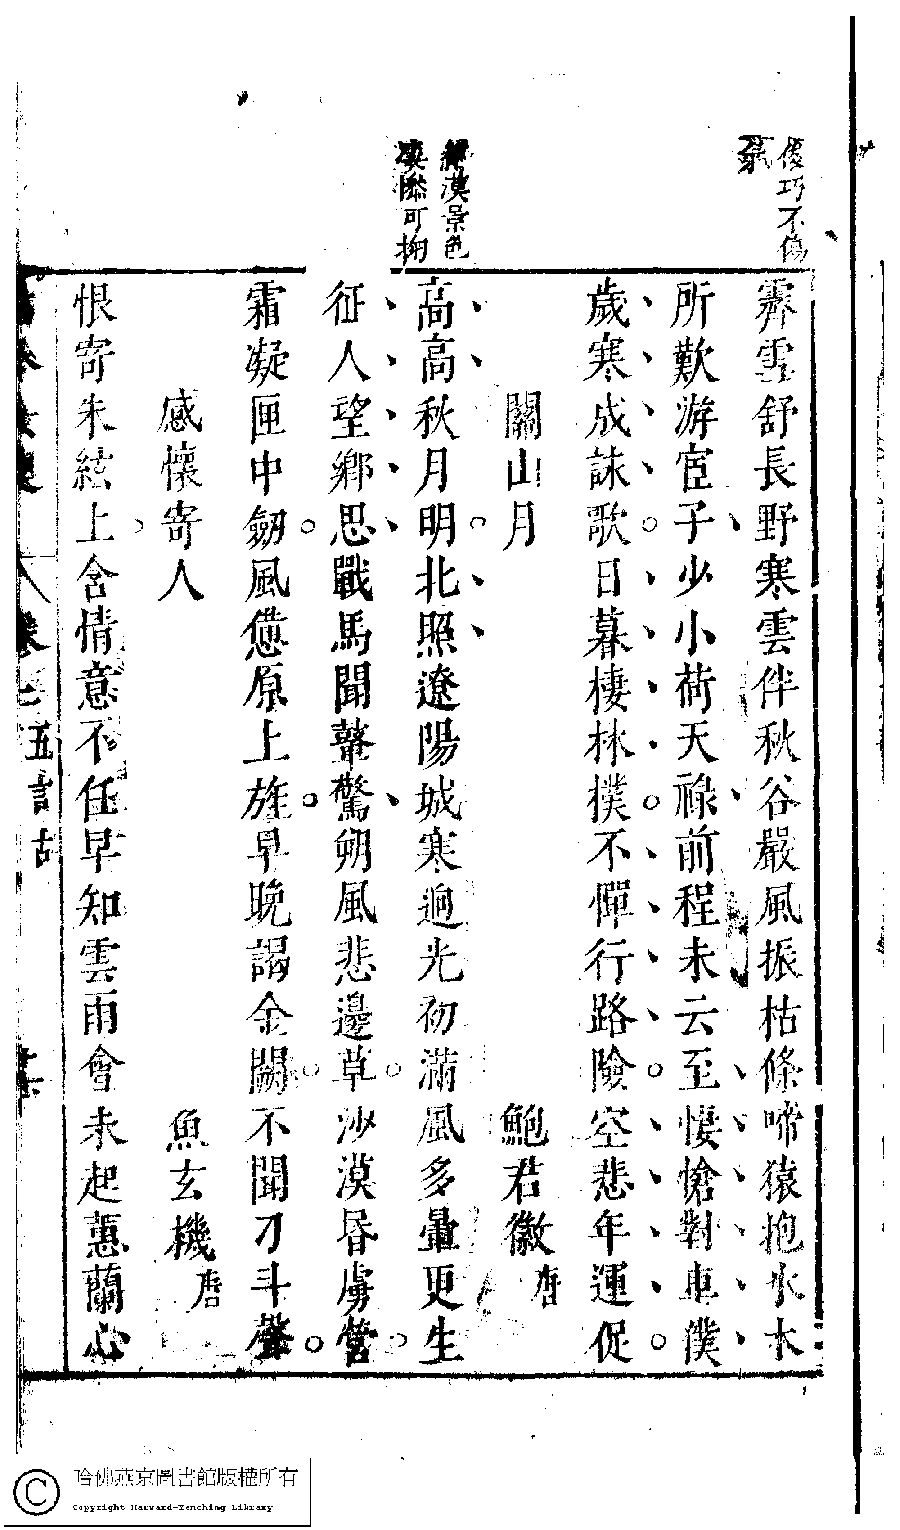 俊巧不傷
氣
霽雲舒長野寒雲伴秋谷嚴風振枯條啼猿抱氷木
所歎游宦子少小荷天祿前程未云至悽愴對車僕
歲寒成詠歌日暮棲林撲不憚行路險空悲年運促
關山月 鮑君徽唐
漠景色
可掬
高高秋月明北照遼陽城寒逈光初滿風多暈更生
征人望鄉思戰馬聞鼙驚朔風悲邊草沙漠昏虜營
霜凝匣中劒風憊原上旌早晚謁金闕不聞刁斗聲
感懷寄人 魚玄機唐
恨寄朱絃上含情意不任早知雲雨會未起蕙蘭心
五言古
哈佛燕京圖書館版權所有
Copyright Harvard-Yenching Library